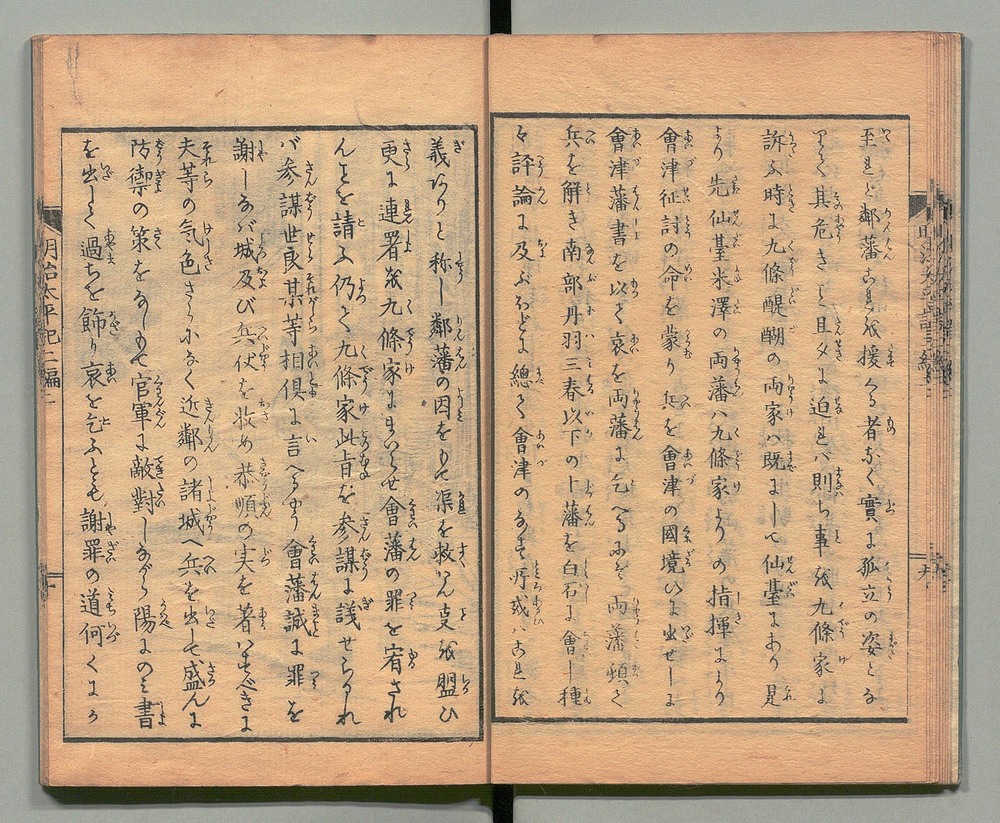 至れど鄰藩これを援くる者なく實に孤立の姿となり
其危きこと旦夕に迫れバ則ち事を九條家に
訴ふ時に九條醍醐の両家ハ既にして仙臺にあり是
より先仙臺米澤の両藩ハ九條家よりの指揮により
會津征討の命を蒙り兵を會津の國境ひに出せしに
會津藩書を以て哀を両藩に乞へるにぞ両藩頓て
兵を解き南部丹羽三春以下の十藩を白石に會し種
々評論に及ぶほどに總て會津のなす所或ハこれを
義なりと称し鄰藩の因をもて渠を救はん支を盟ひ
更に連署を九條家にまゐらせ會藩の罪を宥され
んことを請ふ仍て九條家此旨を参謀に議せらるれ
バ参謀世良某等相倶に言へるやう會藩誠に罪を
謝しなバ城及び兵仗を收め恭順の実を著ハすべきに
夫等の気色さらになく近鄰の諸城へ兵を出して盛んに
防禦の策をなしもて官軍に敵對しながら陽にのミ書
を出して過ちを飾り哀を乞ふとも謝罪の道何くにか
明治太平記二編二